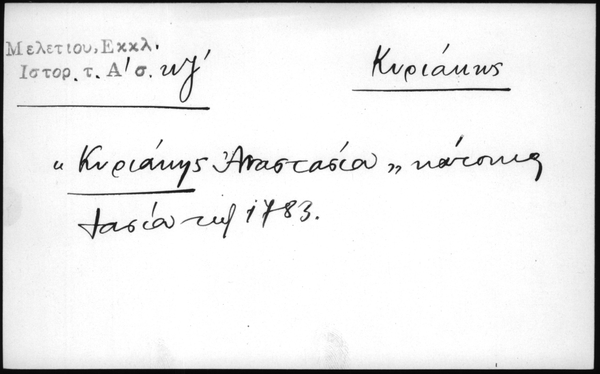 Μελετίου, Εκκλ.
Ιστορ. τ. Α' σ. κζ'
Κυριάκης
"Κυριάκης Ἀναστασία" κάτοικος
Ἰασίῳ τῷ 1783.